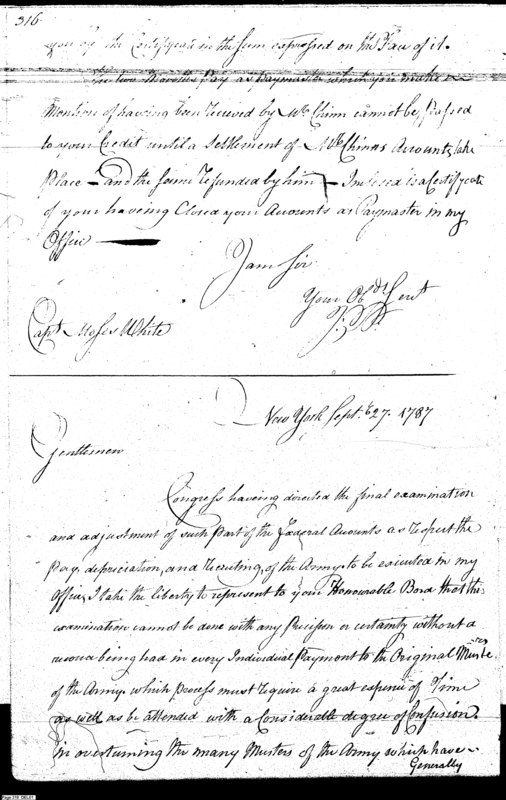 316
you by the Certificate in the sum expressed on the Face of it.
The two Months Pay as paymaster which you make
mention of having been received by Mr. Chinn cannot be passed
to your Credit until a settlement of Mr. Chinns Accounts take
Place — and the same refunded by him — Inclosed is a Certificate
of your having Closed your Accounts as Paymaster in my
Office
I am Sir
Your Obdt Servt
Capt Moses White
New York Septr. 27. 1787
Gentlemen
Congress haveing directed the final examination
and adjustment of such part of the Federal Accounts as respect the
Pay, depreciation, and recruiting, of the Army to be executed in my
Office, I take the liberty to represent to your Honourable Bord that this
examination cannot be done with any Precision or certainty without a
recource being had in every Individual Payment to the Original Musters
of the Army. which process must require a great expence of Time
as well as be attended with a Considerable degree of Confusion.
in overturning the many Musters of the Army which have
Generally
Page 316